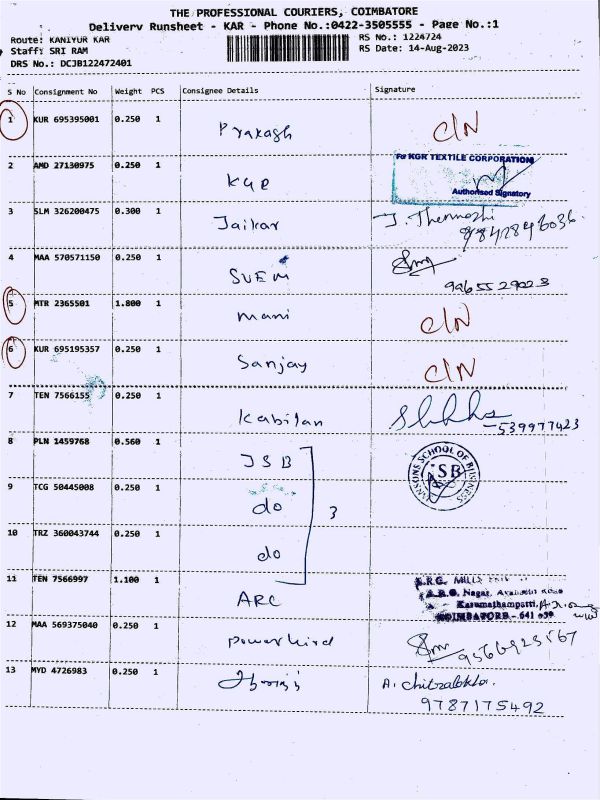 THE PROFESSIONAL COURIERS, COIMBATORE
Delivery Runsheet - KAR - Phone No.:0422-3505555 - Page No.:1
Route: KANIYUR KAR
RS No.: 1224724
Staff: SRI RAM
RS Date: 14-Aug-2023
DRS No.: DCJB122472401
S No Consignment No Weight PCS Consignee Details Signature
1 KUR 695395001 0.250 1 Prakash C/N
2 AMD 27130975 0.250 1 KGR
For KGR TEXTILE CORPORATION
Authorised Signatory
3 SLM 326200475 0.300 1 Jaikar J. Thenmozhi
9842846036.
4 MAA 570571150 0.250 1 SVEM
9965529023
5 MTR 2365501 1.800 1 mani C/N
6 KUR 695195357 0.250 1 Sanjay C/N
7 TEN 7566155 0.250 1 Kabilan
539977423
8 PLN 1459768 0.560 1 JSB
JANSONS SCHOOL OF BUSINESS
JSB
9 TCG 50445008 0.250 1 do 3
10 TRZ 360043744 0.250 1 do
11 TEN 7566997 1.100 1 ARC
A.R.G. MILLS
A.R.G. Nagar,
Karumathampatti,
COIMBATORE - 641 659
12 MAA 569375040 0.250 1 powerhird
9566923567
13 MYD 4726983 0.250 1 A. Chitralekha.
9787175492